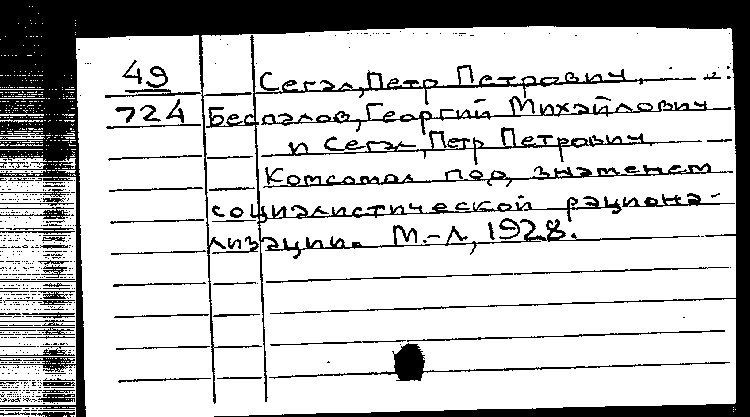 49 Сегал, Петр Петрович. и:
724 Беспалов, Георгий Михайлович
и Сегал, Петр Петрович.
Комсомол под знаменем
социалистической рациона-
лизации. М.-Л, 1928.